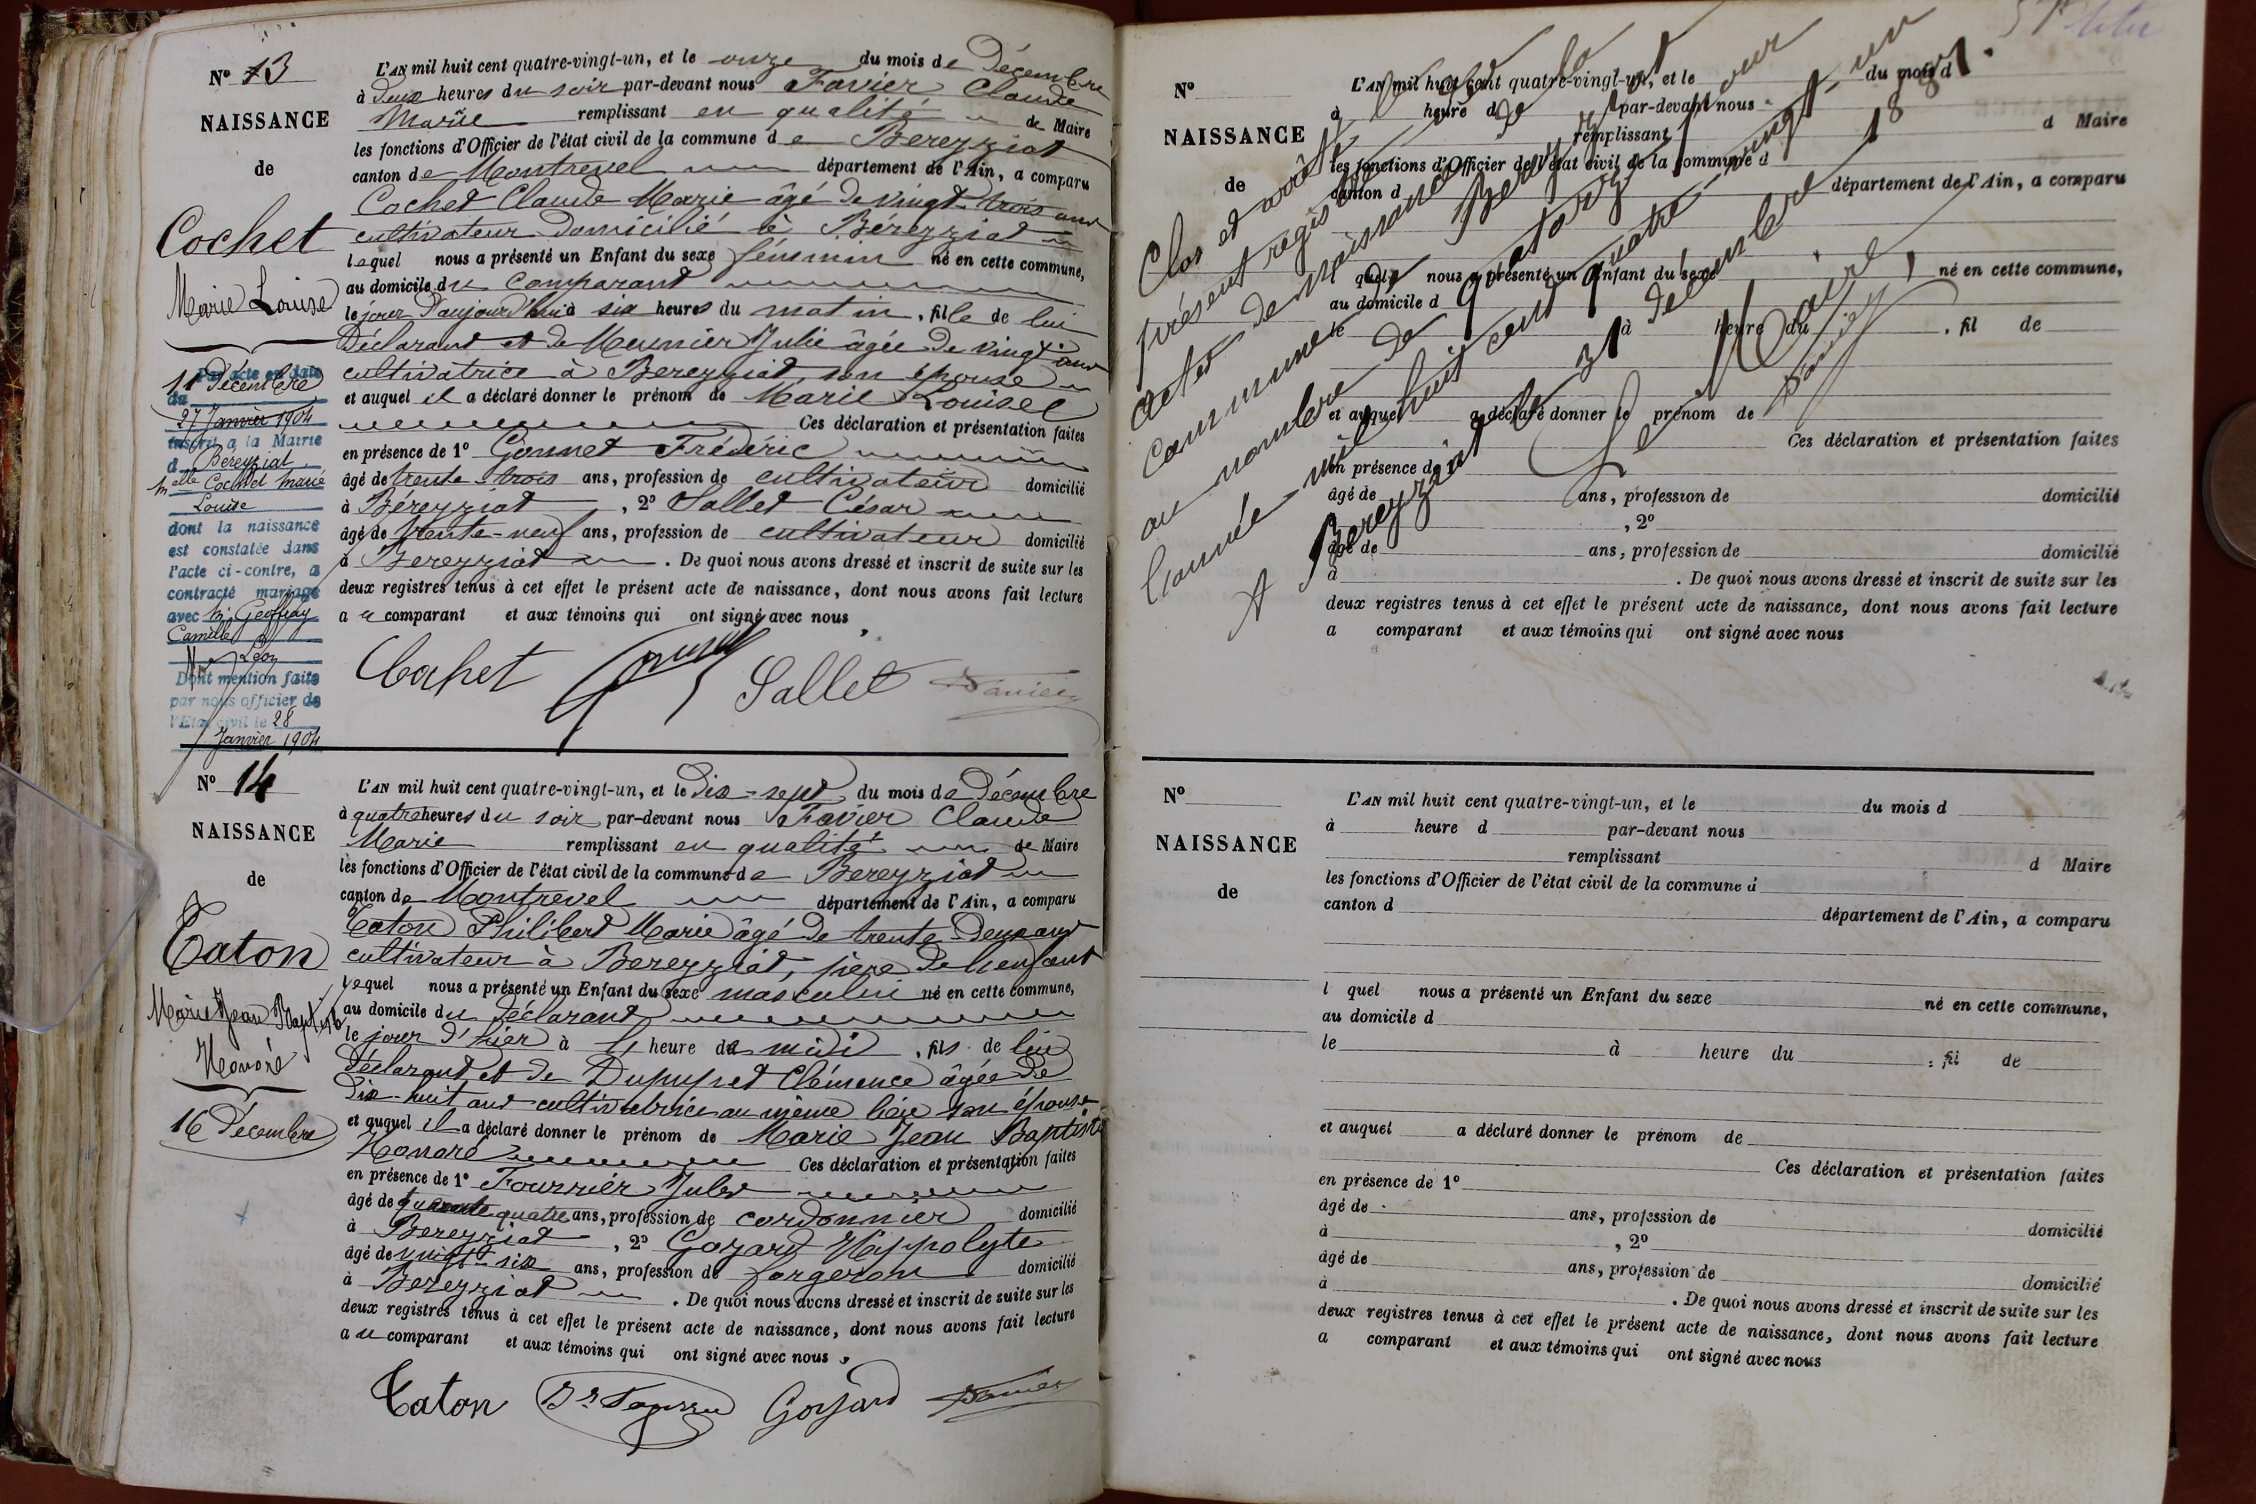 N° 13
NAISSANCE
de
Cochet
Marie Louise
11 Décembre
Par acte en date
du
27 Janvier 1904
inscrit à la Mairie
d Béreyziat
Melle Cochet Marie
Louise
dont la naissance
est constatée dans
l'acte ci-contre, a
contracté mariage
avec Mr Geoffray
Camille
Léon
Dont mention faite
par nous officier de
l'Etat civil le 28
Janvier 1904
L'AN mil huit cent quatre-vingt-un, et le onze du mois de Décembre
à deux heures du soir par-devant nous Favier Claude
Marie remplissant en qualité de Maire
les fonctions d'Officier de l'état civil de la commune de Bereyziat
canton de Montrevel département de l'Ain, a comparu
Cochet Claude Marie âgé de vingt-trois ans
cultivateur domicilié à Béreyziat
lequel nous a présenté un Enfant du sexe féminin né en cette commune,
au domicile du comparant
le jour d'aujourd'hui à six heures du matin, fille de lui
Déclarant et de Meunier Julie âgée de vingt ans
cultivatrice à Bereyziat, son épouse
et auquel il a déclaré donner le prénom de Marie Louise
Ces déclaration et présentation faites
en présence de 1° Gonnet Frédéric
âgé de trente-trois ans, profession de cultivateur domicilié
à Béreyziat, 2° Sallet César
âgé de trente-neuf ans, profession de cultivateur domicilié
à Bereyziat. De quoi nous avons dressé et inscrit de suite sur les
deux registres tenus à cet effet le présent acte de naissance, dont nous avons fait lecture
au comparant et aux témoins qui ont signé avec nous
Cochet Sallet
N° 14
NAISSANCE
de
Taton
Marie Jean Baptiste
Honoré
16 Décembre
L'AN mil huit cent quatre-vingt-un, et le dix-sept du mois de Décembre
à quatre heures du soir par-devant nous Favier Claude
Marie remplissant en qualité de Maire
les fonctions d'Officier de l'état civil de la commune de Bereyziat
canton de Montrevel département de l'Ain, a comparu
Taton Philibert Marie âgé de trente-deux ans
cultivateur à Bereyziat, père de l'enfant
lequel nous a présenté un Enfant du sexe masculin né en cette commune,
au domicile du déclarant
le jour d'hier à heure de midi, fils de lui
Déclarant et de Dupupet Clémence âgée de
dix-huit ans cultivatrice au même lieu son épouse
et auquel il a déclaré donner le prénom de Marie Jean Baptiste
Honoré Ces déclaration et présentation faites
en présence de 1° Fourrier Jules
âgé de quarante quatre ans, profession de cordonnier domicilié
à Bereyziat, 2° Goyard Hippolyte
âgé de vingt-six ans, profession de forgeron domicilié
à Bereyziat. De quoi nous avons dressé et inscrit de suite sur les
deux registres tenus à cet effet le présent acte de naissance, dont nous avons fait lecture
au comparant et aux témoins qui ont signé avec nous
Taton Goyard
N°
NAISSANCE
de
L'AN mil huit cent quatre-vingt-un, et le du mois d
à heure d par-devant nous
remplissant d Maire
les fonctions d'Officier de l'état civil de la commune d
canton d département de l'Ain, a comparu
quel nous a présenté un Enfant du sexe né en cette commune,
au domicile d
le à heure du , fil de
et auquel a déclaré donner le prénom de
Ces déclaration et présentation faites
en présence de
âgé de ans, profession de domicilié
, 2°
âgé de ans, profession de domicilié
à . De quoi nous avons dressé et inscrit de suite sur les
deux registres tenus à cet effet le présent acte de naissance, dont nous avons fait lecture
a comparant et aux témoins qui ont signé avec nous
Clos et arrêté le
présent registre des
actes de naissance de la
commune de Bereyziat
au nombre de quatorze pour
l'année mil huit cent quatre-vingt-un
A Bereyziat le 31 décembre 1881.
Le Maire,
N°
NAISSANCE
de
L'AN mil huit cent quatre-vingt-un, et le du mois d
à heure d par-devant nous
remplissant d Maire
les fonctions d'Officier de l'état civil de la commune d
canton d département de l'Ain, a comparu
l quel nous a présenté un Enfant du sexe né en cette commune,
au domicile d
le à heure du , fil de
et auquel a déclaré donner le prénom de
Ces déclaration et présentation faites
en présence de 1°
âgé de ans, profession de domicilié
à , 2°
âgé de ans, profession de domicilié
à . De quoi nous avons dressé et inscrit de suite sur les
deux registres tenus à cet effet le présent acte de naissance, dont nous avons fait lecture
a comparant et aux témoins qui ont signé avec nous